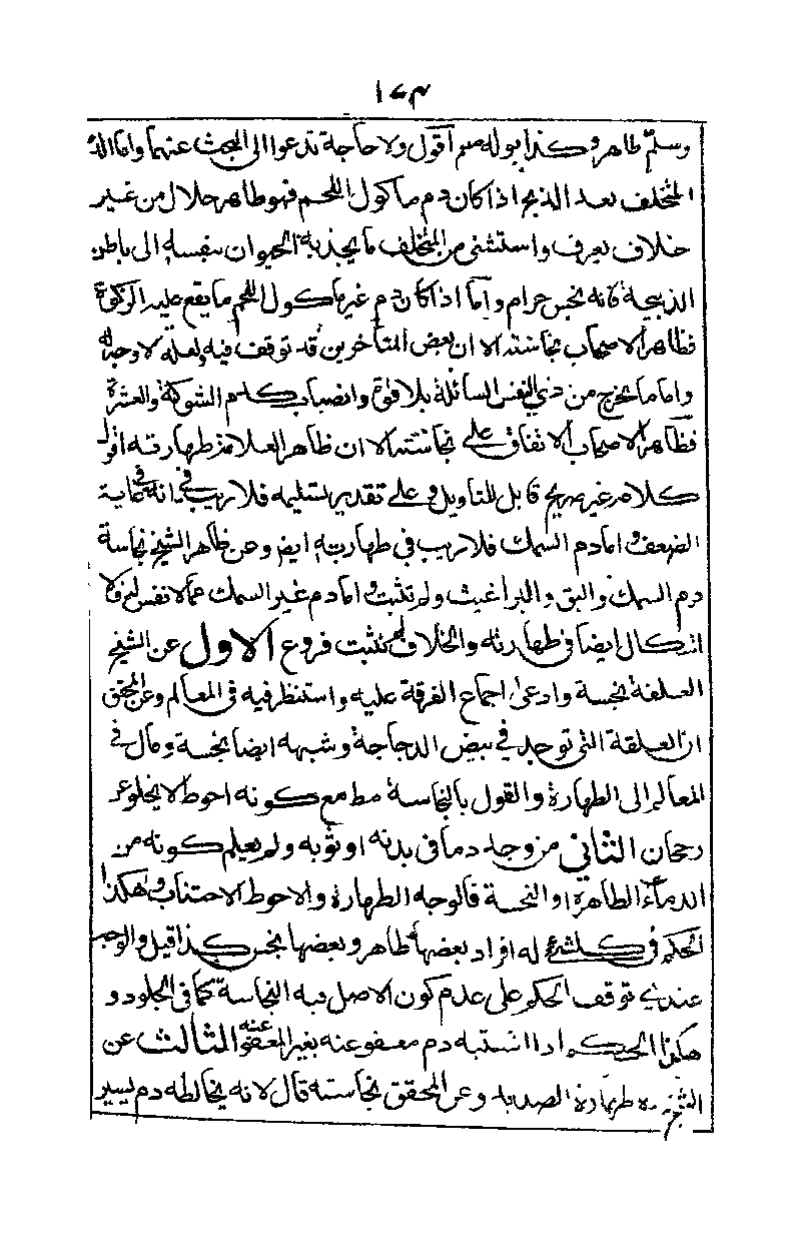 ١٧٣
وسلّم طاهر وكذا بوله صم اقول ولا حاجة تدعوا الى البحث عنهما واما الدم
المتخلف بعد الذبح اذا كان دم ماكول اللحم فهو طاهر حلال من غير
خلاف يعرف واستثنى من المتخلف ما يجذبه الحيوان بنفسه الى باطن
الذبيحة فانه نجس حرام وامّا اذا كان دم غير ماكول اللحم ما يقع عليه الزكوة
فظاهر الاصحاب نجاسته الا ان بعض المتأخرين قد توقف فيه ولعله لا وجه له
واما ما يخرج من ذي النفس السائلة بلا قوة وانصباب كدم الشوكة والعثرة
فظاهر الاصحاب الاتفاق على نجاسته الا ان ظاهر العلامة طهارته اقول
كلامه غير صريح قابل للتاويل وعلى تقدير تسليمه فلا ريب في انه في غاية
الضعف واما دم السمك فلا ريب في طهارته ايضا وعن ظاهر الشيخ نجاسة
دم السمك والبق والبراغيث ولم تثبت واما دم غير السمك مما لا نفس له فلا
اشكال ايضا في طهارته والخلاف لم تثبت فروع الاول عن الشيخ
العلقة نجسة وادعى اجماع الفرقة عليه واستنظر فيه في المعالم وعن المحقق
ان العلقة التي توجد في بيض الدجاجة وشبهه ايضا نجسة ومال في
المعالم الى الطهارة والقول بالنجاسة مط مع كونه احوط لا يخلو عن
رجحان الثاني من وجد دما في بدنه او ثوبه ولم يعلم كونه من
الدماء الطاهرة او النجسة فالوجه الطهارة والاحوط الاجتناب وهكذا
الحكم في كلشئ له افراد بعضها طاهر وبعضها نجس كذا قيل والوجه
عندي توقف الحكم على عدم كون الاصل فيه النجاسة كما في الجلود و
هكذا الحكم اذا اشتبه دم معفو عنه بغير المعفو عنه الثالث عن
الشيخ ره طهارة الصديد وعن المحقق نجاسته قال لانه يخالطه دم يسير